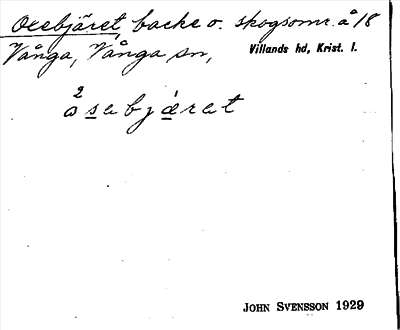 Åsebjäret, backe o. skogsomr. å 18
Vånga, Vånga sn, Villands hd, Krist. l.
2
åsebjäret
JOHN SVENSSON 1929